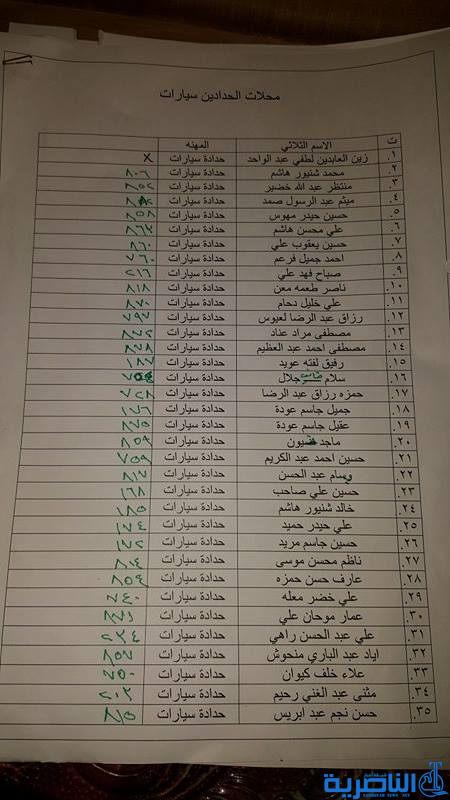 محلات الحدادين سيارات
ت الاسم الثلاثي المهنه
١. زين العابدين لطفي عبد الواحد حدادة سيارات x
٢. محمد شنيور هاشم حدادة سيارات ٨٠٦
٣. منتظر عبد الله خضير حدادة سيارات
٤. ميثم عبد الرسول صمد حدادة سيارات
٥. حسين حيدر مهوس حدادة سيارات ٨٥٨
٦. علي محسن هاشم حدادة سيارات ٨٦٢
٧. حسين يعقوب علي حدادة سيارات ٨٦٠
٨. احمد جميل فرعم حدادة سيارات ٧٦٠
٩. صباح فهد علي حدادة سيارات ٢١٦
١٠. ناصر طعمه معن حدادة سيارات ٨١٨
١١. علي خليل دحام حدادة سيارات ٨٧٠
١٢. رزاق عبد الرضا لعيوس حدادة سيارات ٧٩٧
١٣. مصطفى مراد عناد حدادة سيارات ٨٧٢
١٤. مصطفى احمد عبد العظيم حدادة سيارات ٨٧٨
١٥. رفيق لفته عويد حدادة سيارات ١٨٧
١٦. سلام جلال حدادة سيارات
١٧. حمزه رزاق عبد الرضا حدادة سيارات ٧٢٨
١٨. جميل جاسم عودة حدادة سيارات ١٧٦
١٩. عقيل جاسم عودة حدادة سيارات ٨٧٥
٢٠. ماجد حدادة سيارات ٨٥٩
٢١. حسين احمد عبد الكريم حدادة سيارات ٧٥٩
٢٢. وسام عبد الحسن حدادة سيارات ٨١٧
٢٣. حسين علي صاحب حدادة سيارات ١٦٨
٢٤. خالد شنيور هاشم حدادة سيارات ١٨٥
٢٥. علي حيدر حميد حدادة سيارات ١٧٤
٢٦. حسين جاسم مريد حدادة سيارات ١٧٢
٢٧. ناظم محسن موسى حدادة سيارات ٨٠٤
٢٨. عارف حسن حمزه حدادة سيارات ٨٥٤
٢٩. علي خضر معله حدادة سيارات ٧٤٠
٣٠. عمار موحان علي حدادة سيارات ٨٧١
٣١. علي عبد الحسن راهي حدادة سيارات ٢٣٤
٣٢. اياد عبد الباري منحوش حدادة سيارات ٨٥٧
٣٣. علاء خلف كيوان حدادة سيارات ٧٥٠
٣٤. مثنى عبد الغني رحيم حدادة سيارات ٢٠٢
٣٥. حسن نجم عبد ابريس حدادة سيارات ٨٧٥
الناصرية